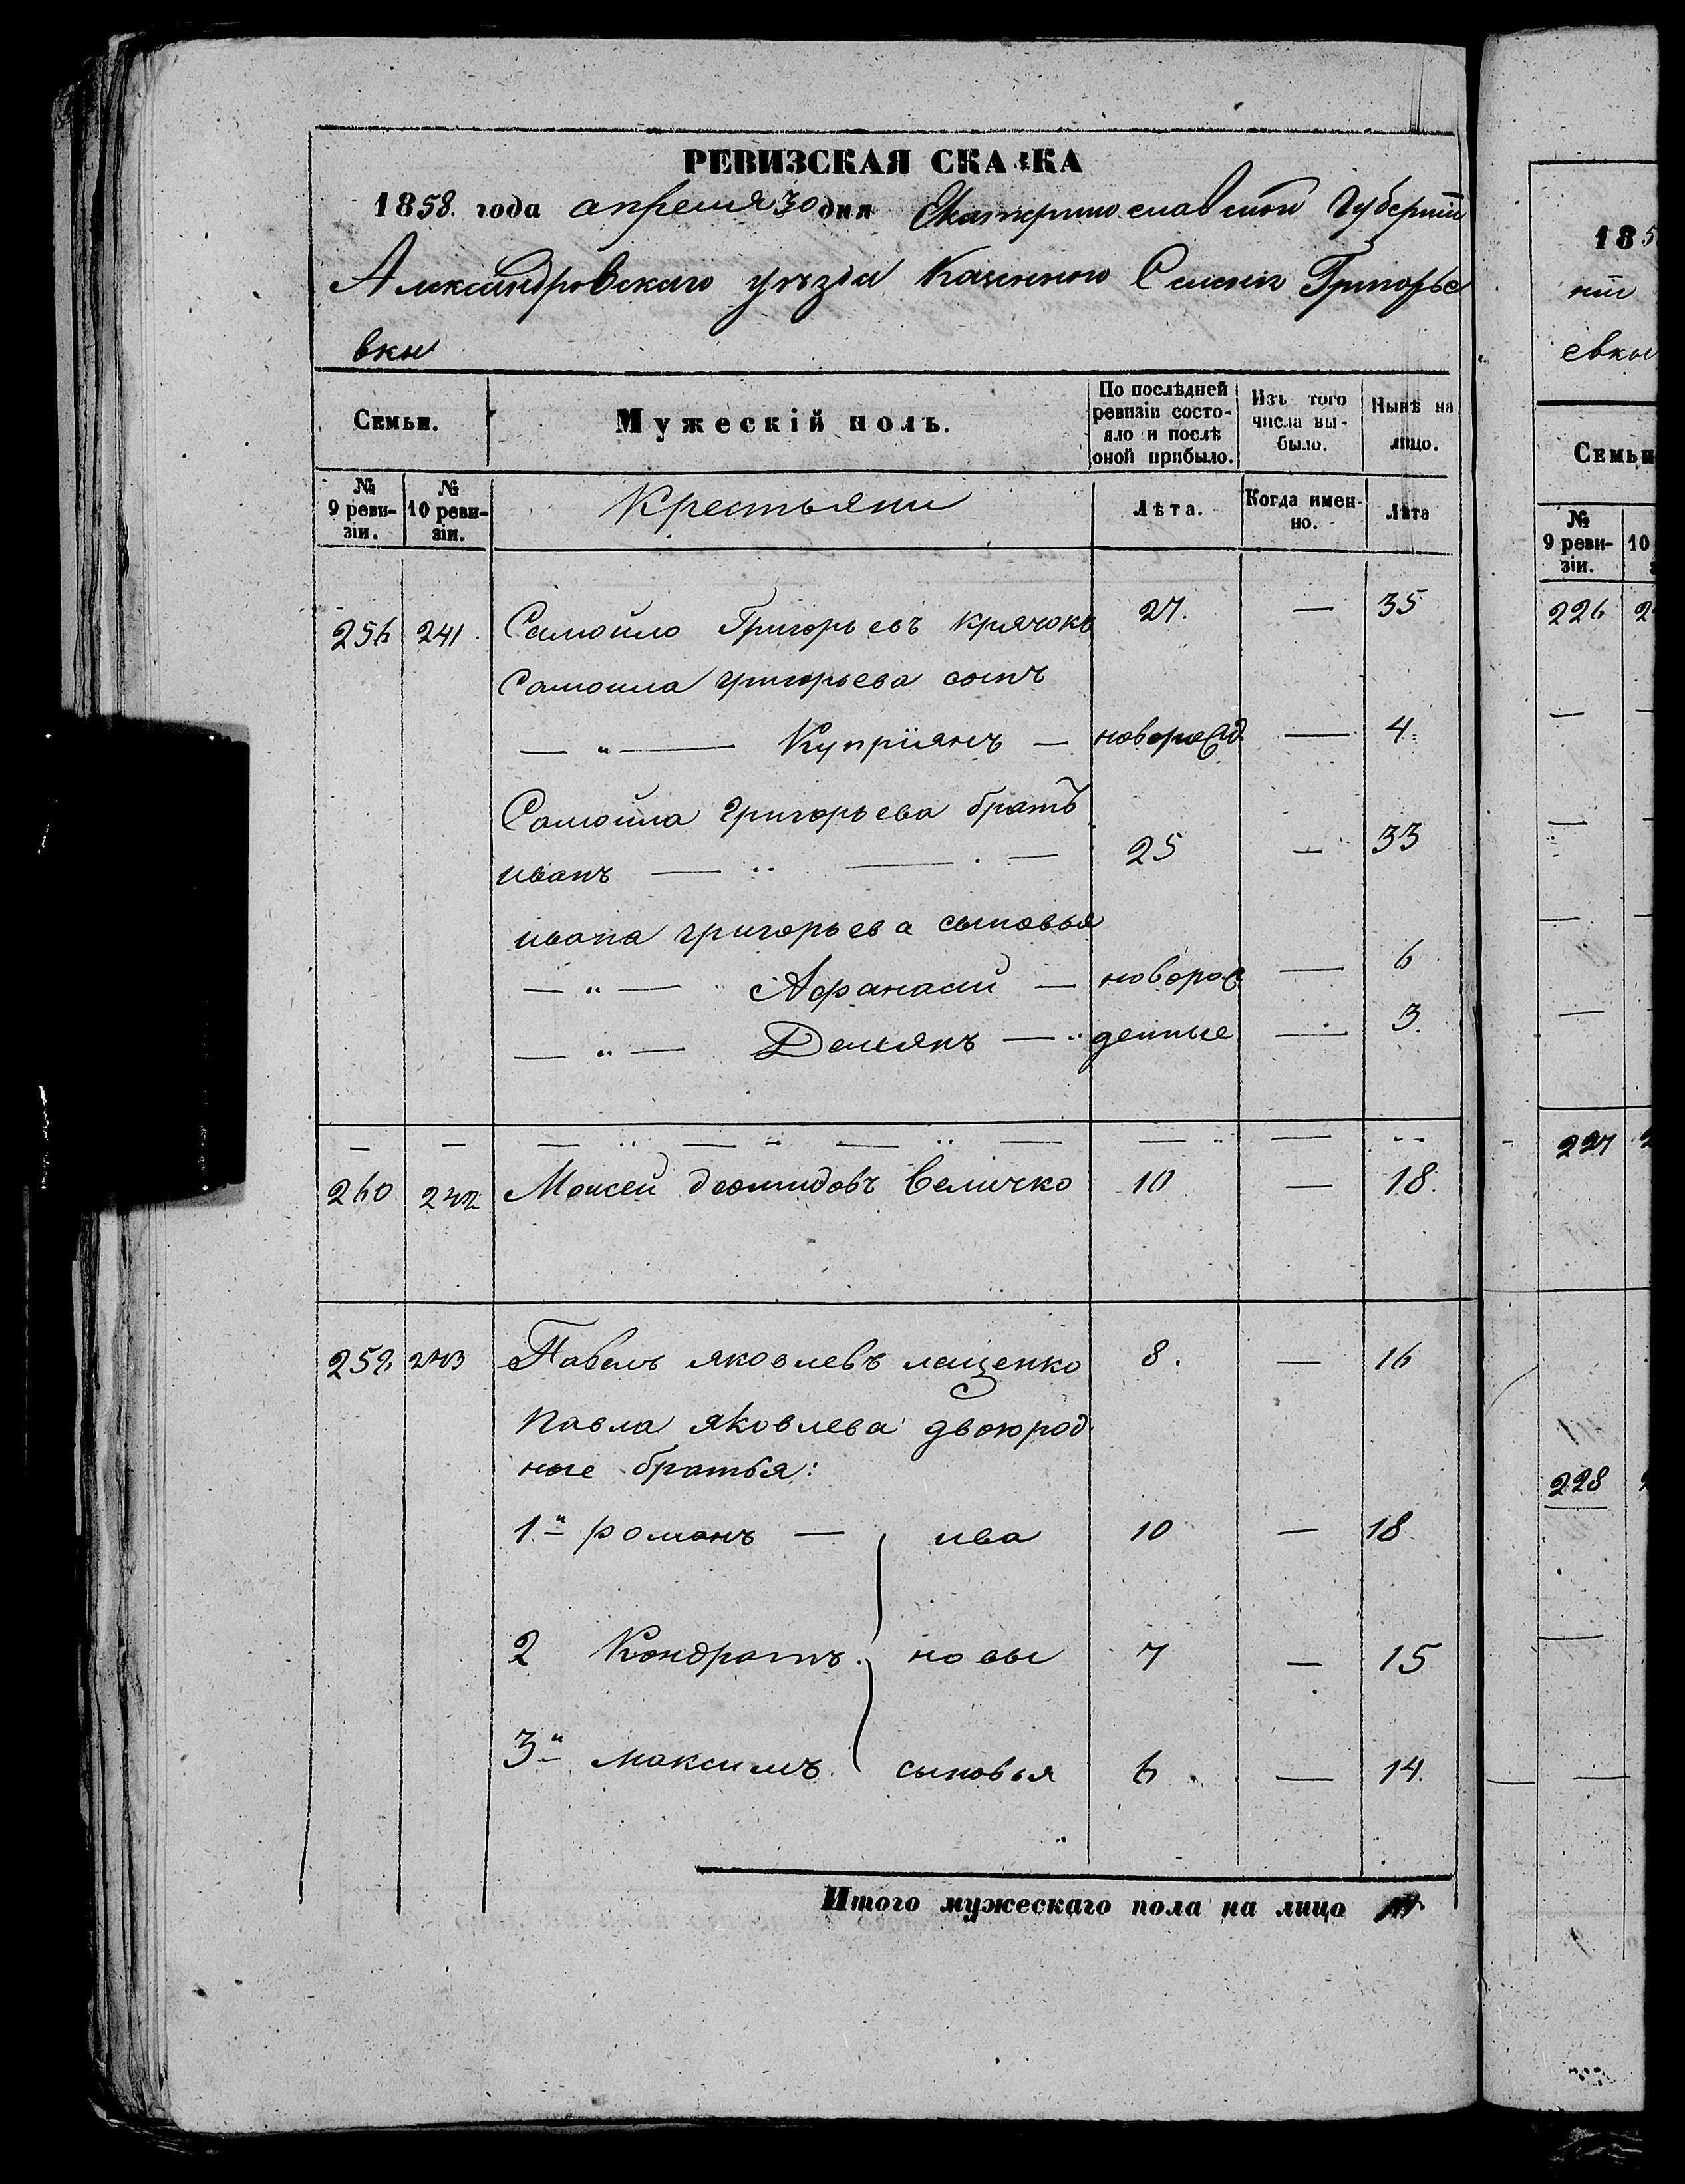 РЕВИЗСКАЯ СКАЗКА
1858. года апреля 30 дня Екатеринославской Губернии
Александровскаго уѣзда Казенного Селения Григорье
вки
Семьи. Мужескій полъ. По послѣдней ревизіи состо-яло и послѣ оной прибыло. Изъ того числа вы-было. Нынѣ на лицо.
№ 9 реви-зіи. № 10 реви-зіи. Крестьяни Лѣта. Когда имен-но. Лѣта
256 241. Самойло Григорьевъ Крячокъ 27. — 35
Самоила григорьева сынъ
— " — Купріянъ — новорожд. — 4
Самойла григорьева братъ
иванъ — " — . — 25 — 33
ивана григорьева сыновья
— " — Афанасий — новорож — 6
— " — Демянъ — " денные — 3.
260 242 Моисей деомидовъ Величко 10 — 18.
259 243 Павелъ яковлевъ лященко 8. — 16
Павла яковлева двоюрод
ные братья:
1й романъ — ива 10 — 18
2 Кондратъ. новы 7 — 15
3й максимъ. сыновья 6 — 14.
Итого мужескаго пола на лицо
185
ніи
евки
Семьи
№ 9 реви-зіи. 10
226
227
228